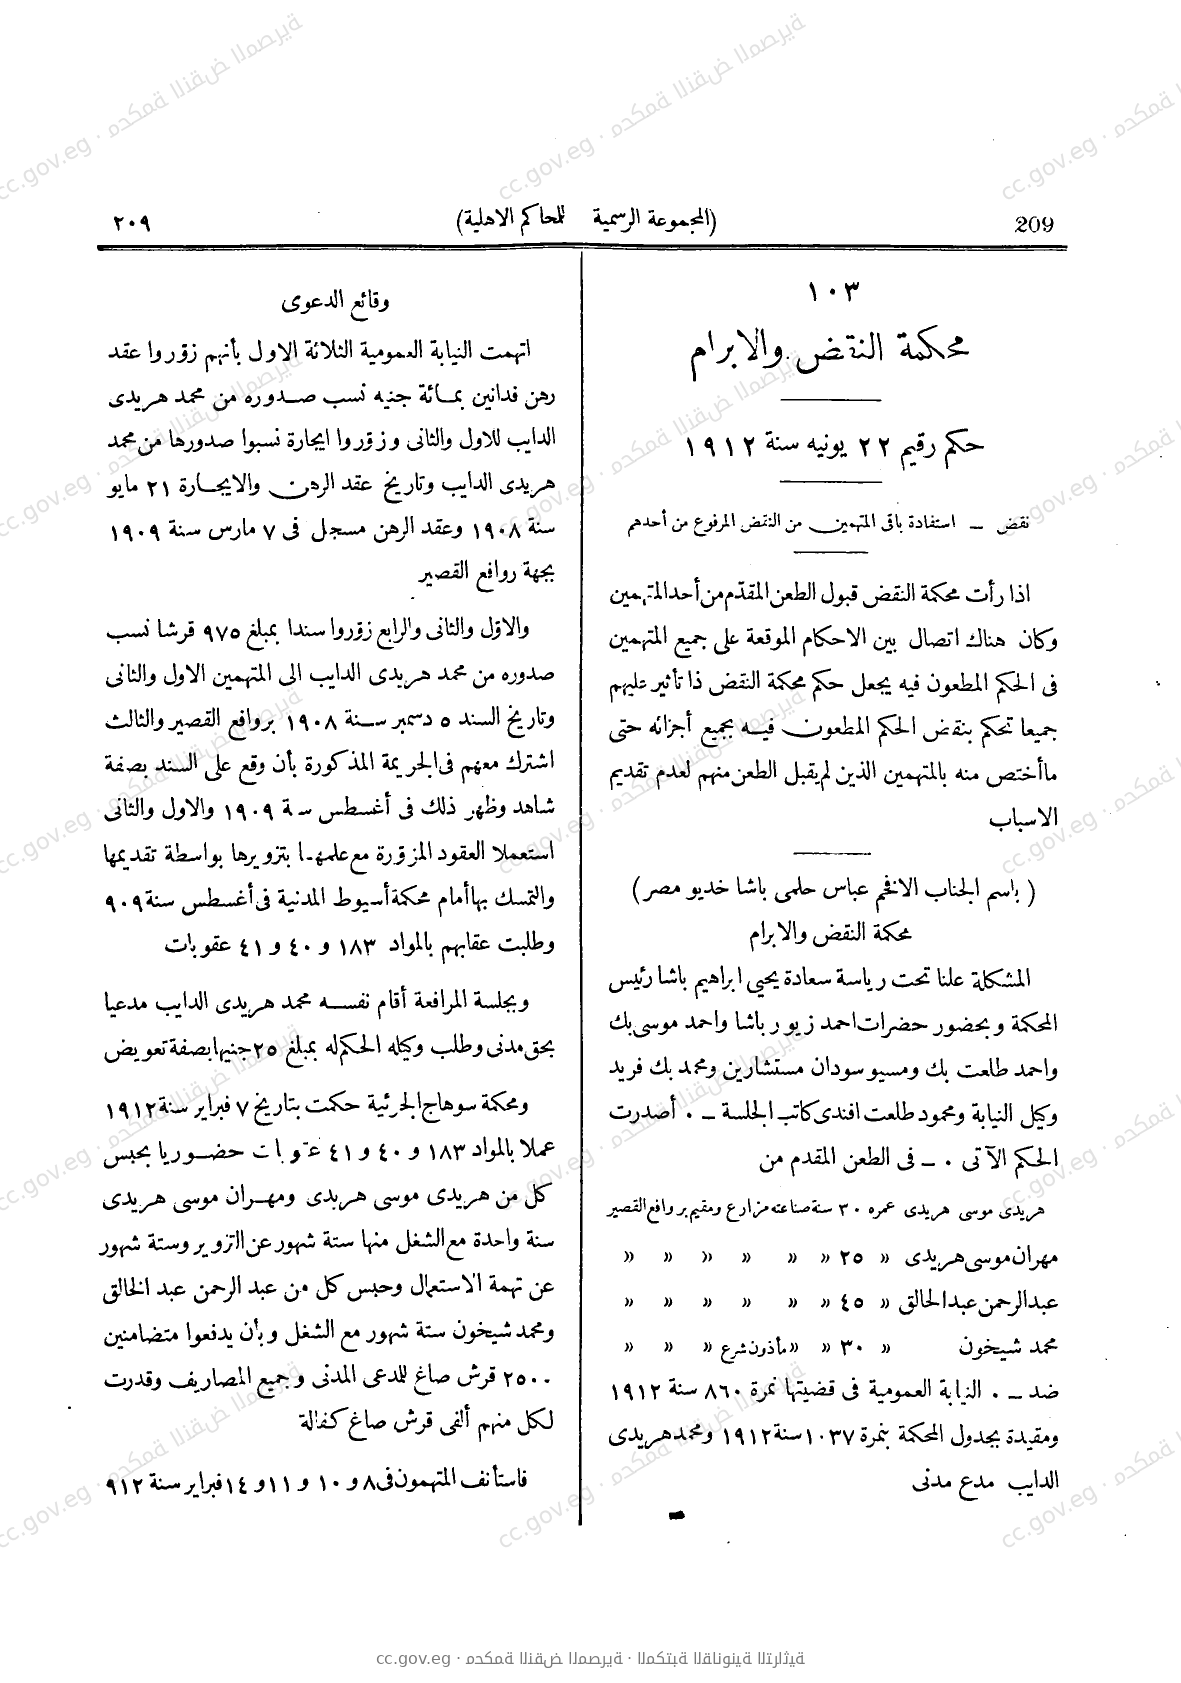 209
(المجموعة الرسمية للمحاكم الاهلية)
٢٠٩
١٠٣
محكمة النقض والابرام
حكم رقيم ٢٢ يونيه سنة ١٩١٢
نقض – استفادة باقى المتهمين من النقض المرفوع من أحدهم
اذا رأت محكمة النقض قبول الطعن المقدّم من أحد المتهمين
وكان هناك اتصال بين الاحكام الموقعة على جميع المتهمين
فى الحكم المطعون فيه يجعل حكم محكمة النقض ذا تأثير عليهم
جميعا تحكم بنقض الحكم المطعون فيه بجميع أجزائه حتى
ماأختص منه بالمتهمين الذين لم يقبل الطعن منهم لعدم تقديم
الاسباب
( باسم الجناب الافخم عباس حلمى باشا خديو مصر )
محكمة النقض والابرام
المشكلة علنا تحت رياسة سعادة يحيى ابراهيم باشا رئيس
المحكمة وبحضور حضرات احمد زيور باشا واحمد موسى بك
واحمد طلعت بك ومسيو سودان مستشارين ومحمد بك فريد
وكيل النيابة ومحمود طلعت افندى كاتب الجلسة – ٠ أصدرت
الحكم الآتى ٠ – فى الطعن المقدم من
هريدى موسى هريدى عمره ٣٠ سنة صناعته مزارع ومقيم بروافع القصير
مهران موسى هريدى « ٢٥ « « « « « «
عبدالرحمن عبدالخالق « ٤٥ « « « « « «
محمد شيخون « ٣٠ « « مأذون شرع « « «
ضد – ٠ النيابة العمومية فى قضيتها نمرة ٨٦٠ سنة ١٩١٢
ومقيدة بجدول المحكمة بنمرة ١٠٣٧ سنة ١٩١٢ ومحمد هريدى
الدايب مدع مدنى
وقائع الدعوى
اتهمت النيابة العمومية الثلاثة الاول بأنهم زوّروا عقد
رهن فدانين بمائة جنيه نسب صدوره من محمد هريدى
الدايب للاول والثانى وزوّروا ايجارة نسبوا صدورها من محمد
هريدى الدايب وتاريخ عقد الرهن والايجارة ٢١ مايو
سنة ١٩٠٨ وعقد الرهن مسجل فى ٧ مارس سنة ١٩٠٩
بجهة روافع القصير
والاوّل والثانى والرابع زوّروا سندا بمبلغ ٩٧٥ قرشا نسب
صدوره من محمد هريدى الدايب الى المتهمين الاول والثانى
وتاريخ السند ٥ دسمبر سنة ١٩٠٨ بروافع القصير والثالث
اشترك معهم فى الجريمة المذكورة بأن وقع على السند بصفة
شاهد وظهر ذلك فى أغسطس سنة ١٩٠٩ والاول والثانى
استعملا العقود المزوّرة مع علمهما بتزويرها بواسطة تقديمها
والتمسك بها أمام محكمة أسيوط المدنية فى أغسطس سنة ٩٠٩
وطلبت عقابهم بالمواد ١٨٣ و ٤٠ و ٤١ عقوبات
وبجلسة المرافعة أقام نفسه محمد هريدى الدايب مدعيا
بحق مدنى وطلب وكيله الحكم له بمبلغ ٢٥ جنيها بصفة تعويض
ومحكمة سوهاج الجزئية حكمت بتاريخ ٧ فبراير سنة ١٩١٢
عملا بالمواد ١٨٣ و ٤٠ و ٤١ عقوبات حضوريا بحبس
كل من هريدى موسى هريدى ومهران موسى هريدى
سنة واحدة مع الشغل منها ستة شهور عن التزوير وستة شهور
عن تهمة الاستعمال وحبس كل من عبد الرحمن عبد الخالق
ومحمد شيخون ستة شهور مع الشغل وبأن يدفعوا متضامنين
٢٥٠٠ قرش صاغ للدعى المدنى وجميع المصاريف وقدرت
لكل منهم ألفى قرش صاغ كفالة
فاستأنف المتهمون فى ٨ و ١٠ و ١١ و ١٤ فبراير سنة ٩١٢
cc.gov.eg · محكمة النقض المصرية · المكتبة القانونية التراثية